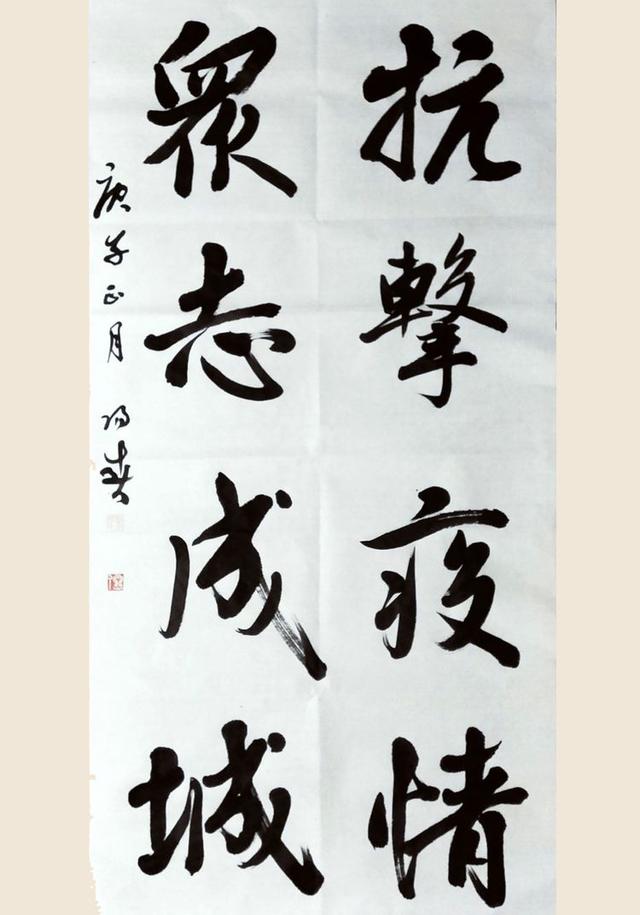 抗擊疫情
眾志成城
庚子正月